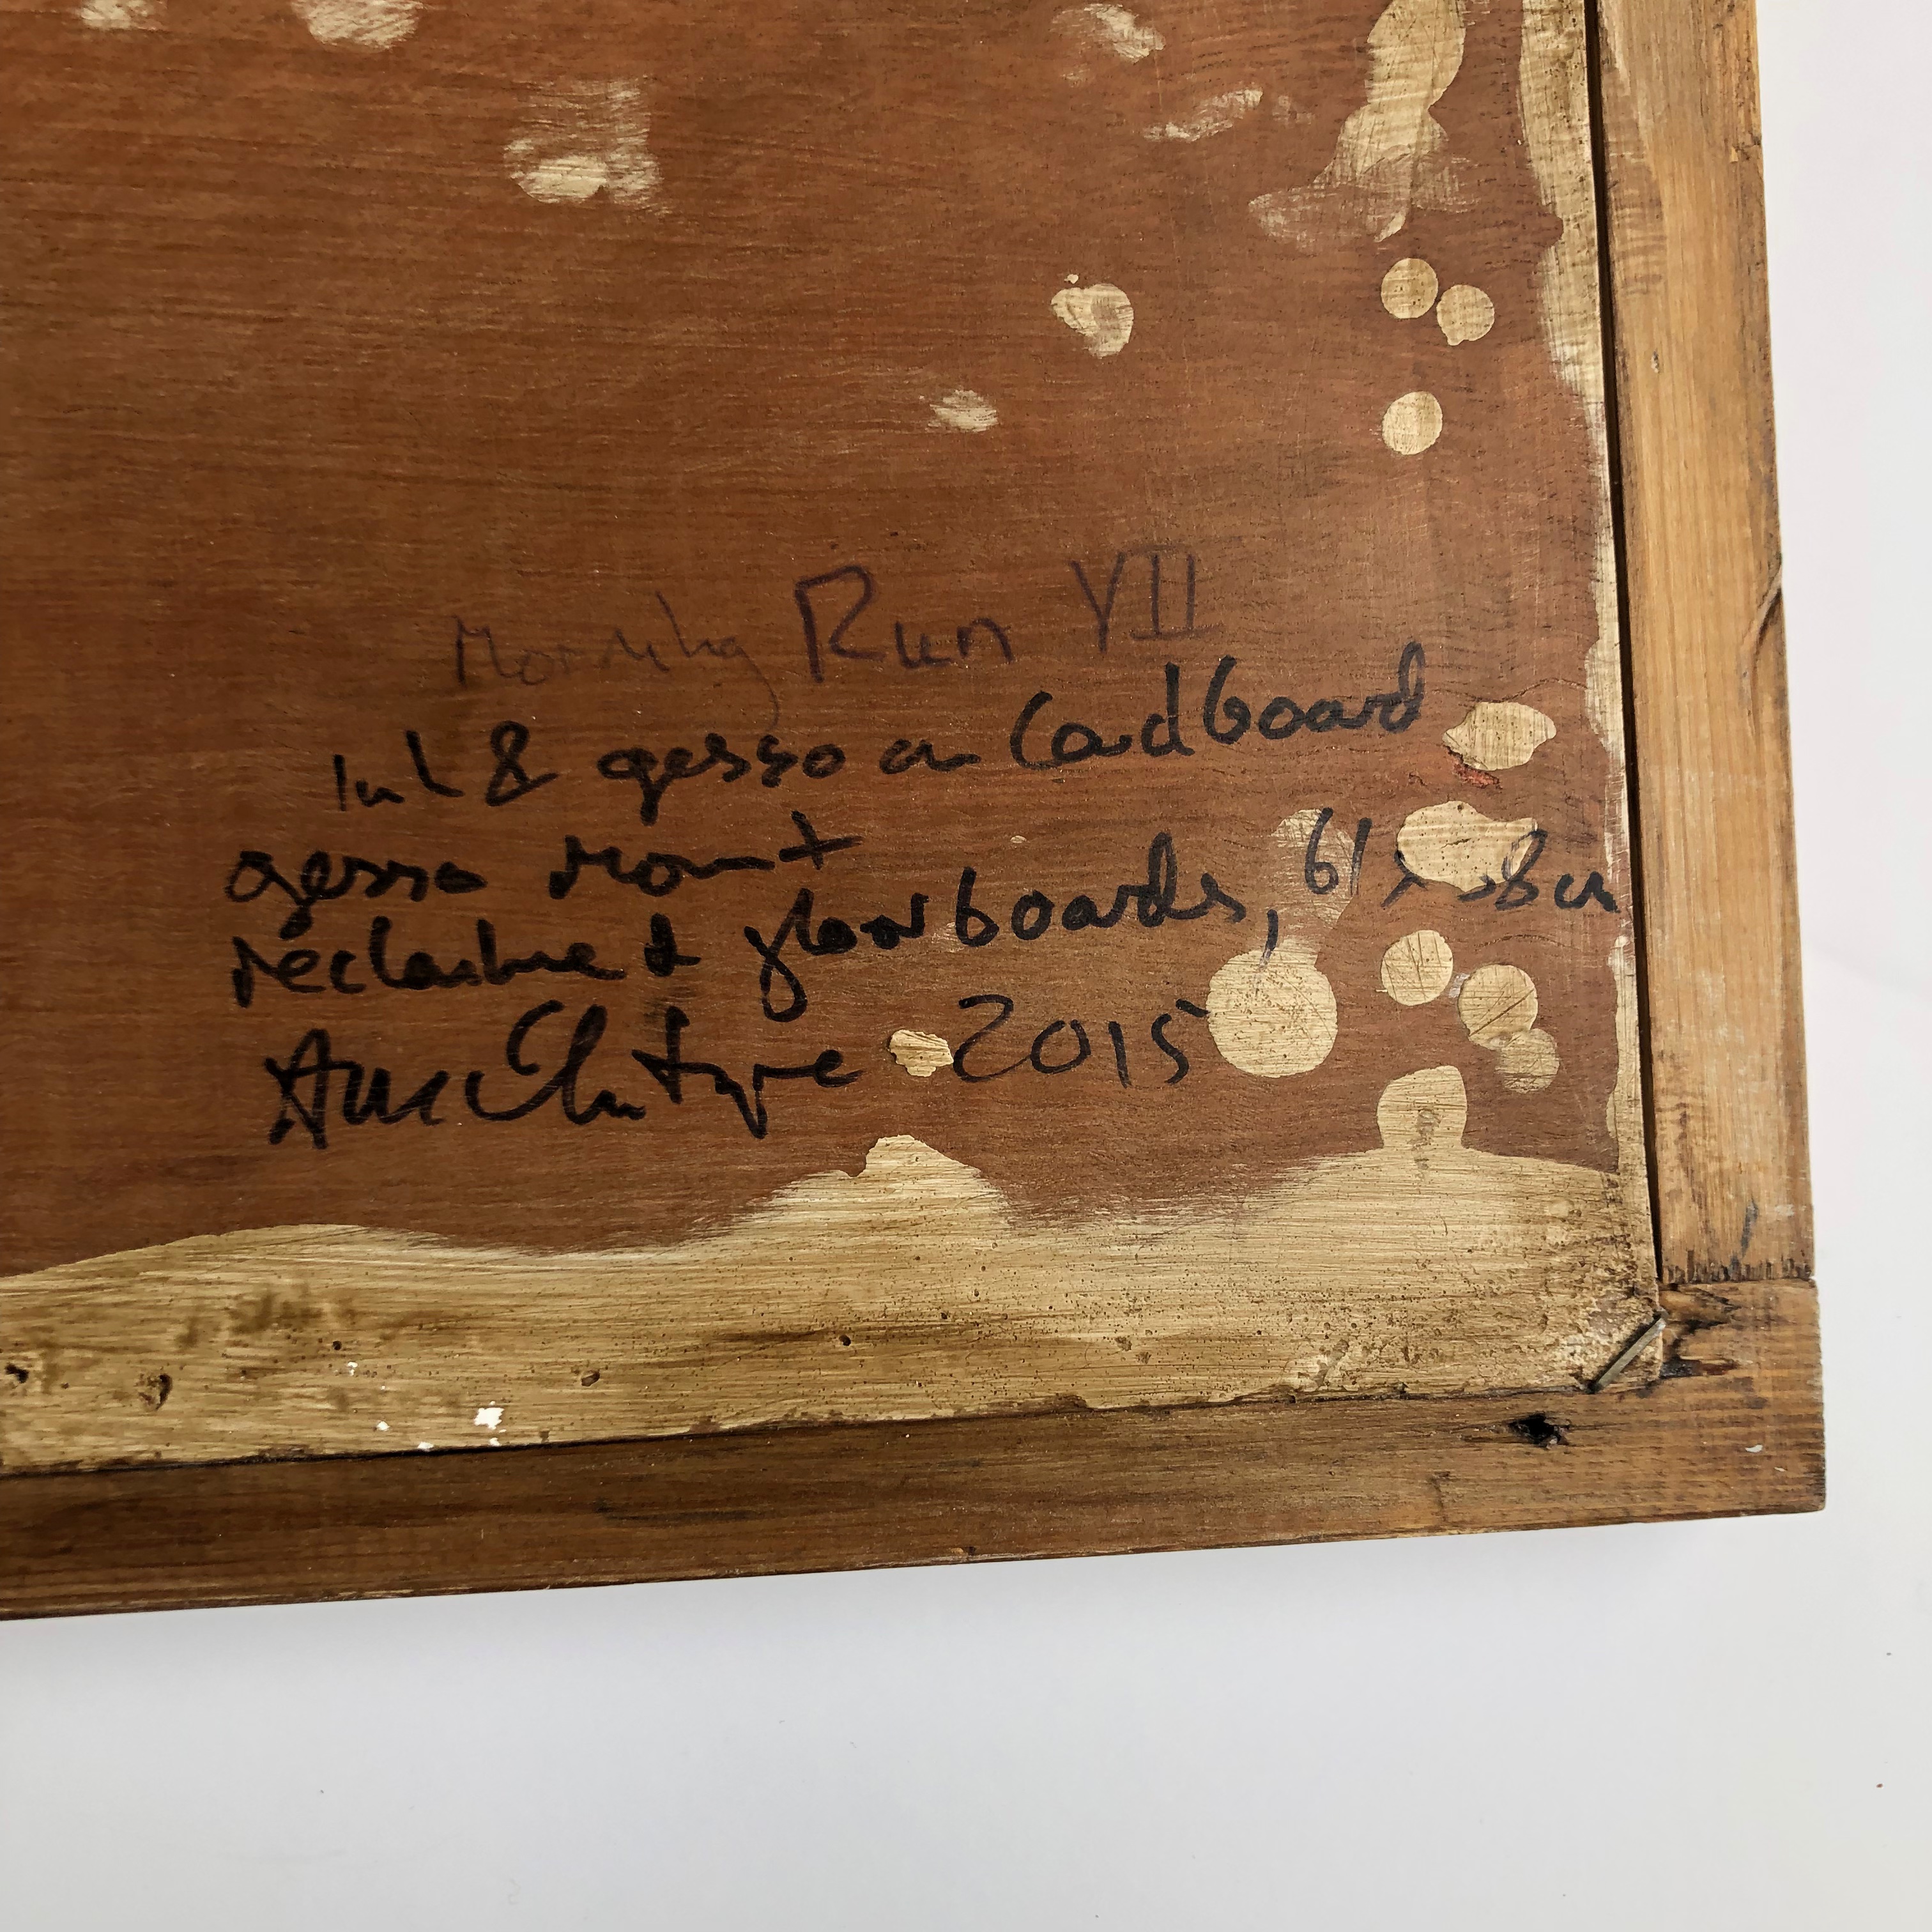 Morning Run VII
Ink & gesso on Cardboard
gesso mount
& floorboards, 61 x
AMcIntyre 2015